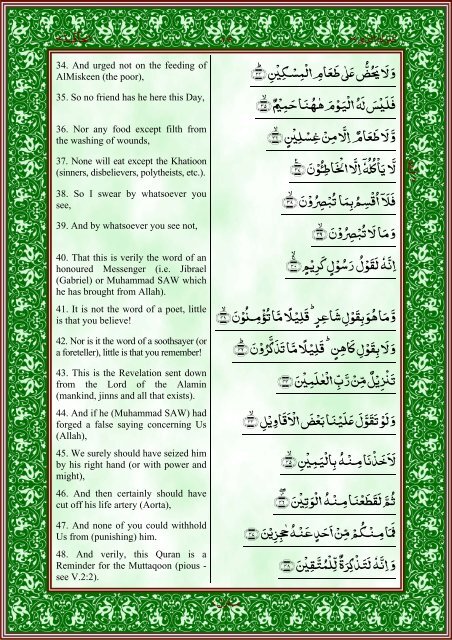 34. And urged not on the feeding of
AlMiskeen (the poor),
وَلَا يَحُضُّ عَلَىٰ طَعَامِ الْمِسْكِيْنِ ﴿٣٤﴾
35. So no friend has he here this Day,
فَلَيْسَ لَهُ الْيَوْمَ هٰهُنَا حَمِيْمٌ ﴿٣٥﴾
36. Nor any food except filth from
the washing of wounds,
وَّلَا طَعَامٌ اِلَّا مِنْ غِسْلِيْنٍ ﴿٣٦﴾
37. None will eat except the Khatioon
(sinners, disbelievers, polytheists, etc.).
لَّا يَاْكُلُهٗٓ اِلَّا الْخَاطِـُٔوْنَ ﴿٣٧﴾
38. So I swear by whatsoever you
see,
فَلَآ اُقْسِمُ بِمَا تُبْصِرُوْنَ ﴿٣٨﴾
39. And by whatsoever you see not,
وَمَا لَا تُبْصِرُوْنَ ﴿٣٩﴾
40. That this is verily the word of an
honoured Messenger (i.e. Jibrael
(Gabriel) or Muhammad SAW which
he has brought from Allah).
اِنَّهٗ لَقَوْلُ رَسُوْلٍ كَرِيْمٍ ﴿٤٠﴾
41. It is not the word of a poet, little
is that you believe!
وَّمَا هُوَ بِقَوْلِ شَاعِرٍ ؕ قَلِيْلًا مَّا تُؤْمِنُوْنَ ﴿٤١﴾
42. Nor is it the word of a soothsayer (or
a foreteller), little is that you remember!
وَلَا بِقَوْلِ كَاهِنٍ ؕ قَلِيْلًا مَّا تَذَكَّرُوْنَ ﴿٤٢﴾
43. This is the Revelation sent down
from the Lord of the Alamin
(mankind, jinns and all that exists).
تَنْزِيْلٌ مِّنْ رَّبِّ الْعٰلَمِيْنَ ﴿٤٣﴾
44. And if he (Muhammad SAW) had
forged a false saying concerning Us
(Allah),
وَلَوْ تَقَوَّلَ عَلَيْنَا بَعْضَ الْاَقَاوِيْلِ ﴿٤٤﴾
45. We surely should have seized him
by his right hand (or with power and
might),
لَاَخَذْنَا مِنْهُ بِالْيَمِيْنِ ﴿٤٥﴾
46. And then certainly should have
cut off his life artery (Aorta),
ثُمَّ لَقَطَعْنَا مِنْهُ الْوَتِيْنَ ﴿٤٦﴾
47. And none of you could withhold
Us from (punishing) him.
فَمَا مِنْكُمْ مِّنْ اَحَدٍ عَنْهُ حٰجِزِيْنَ ﴿٤٧﴾
48. And verily, this Quran is a
Reminder for the Muttaqoon (pious -
see V.2:2).
وَاِنَّهٗ لَتَذْكِرَةٌ لِّلْمُتَّقِيْنَ ﴿٤٨﴾